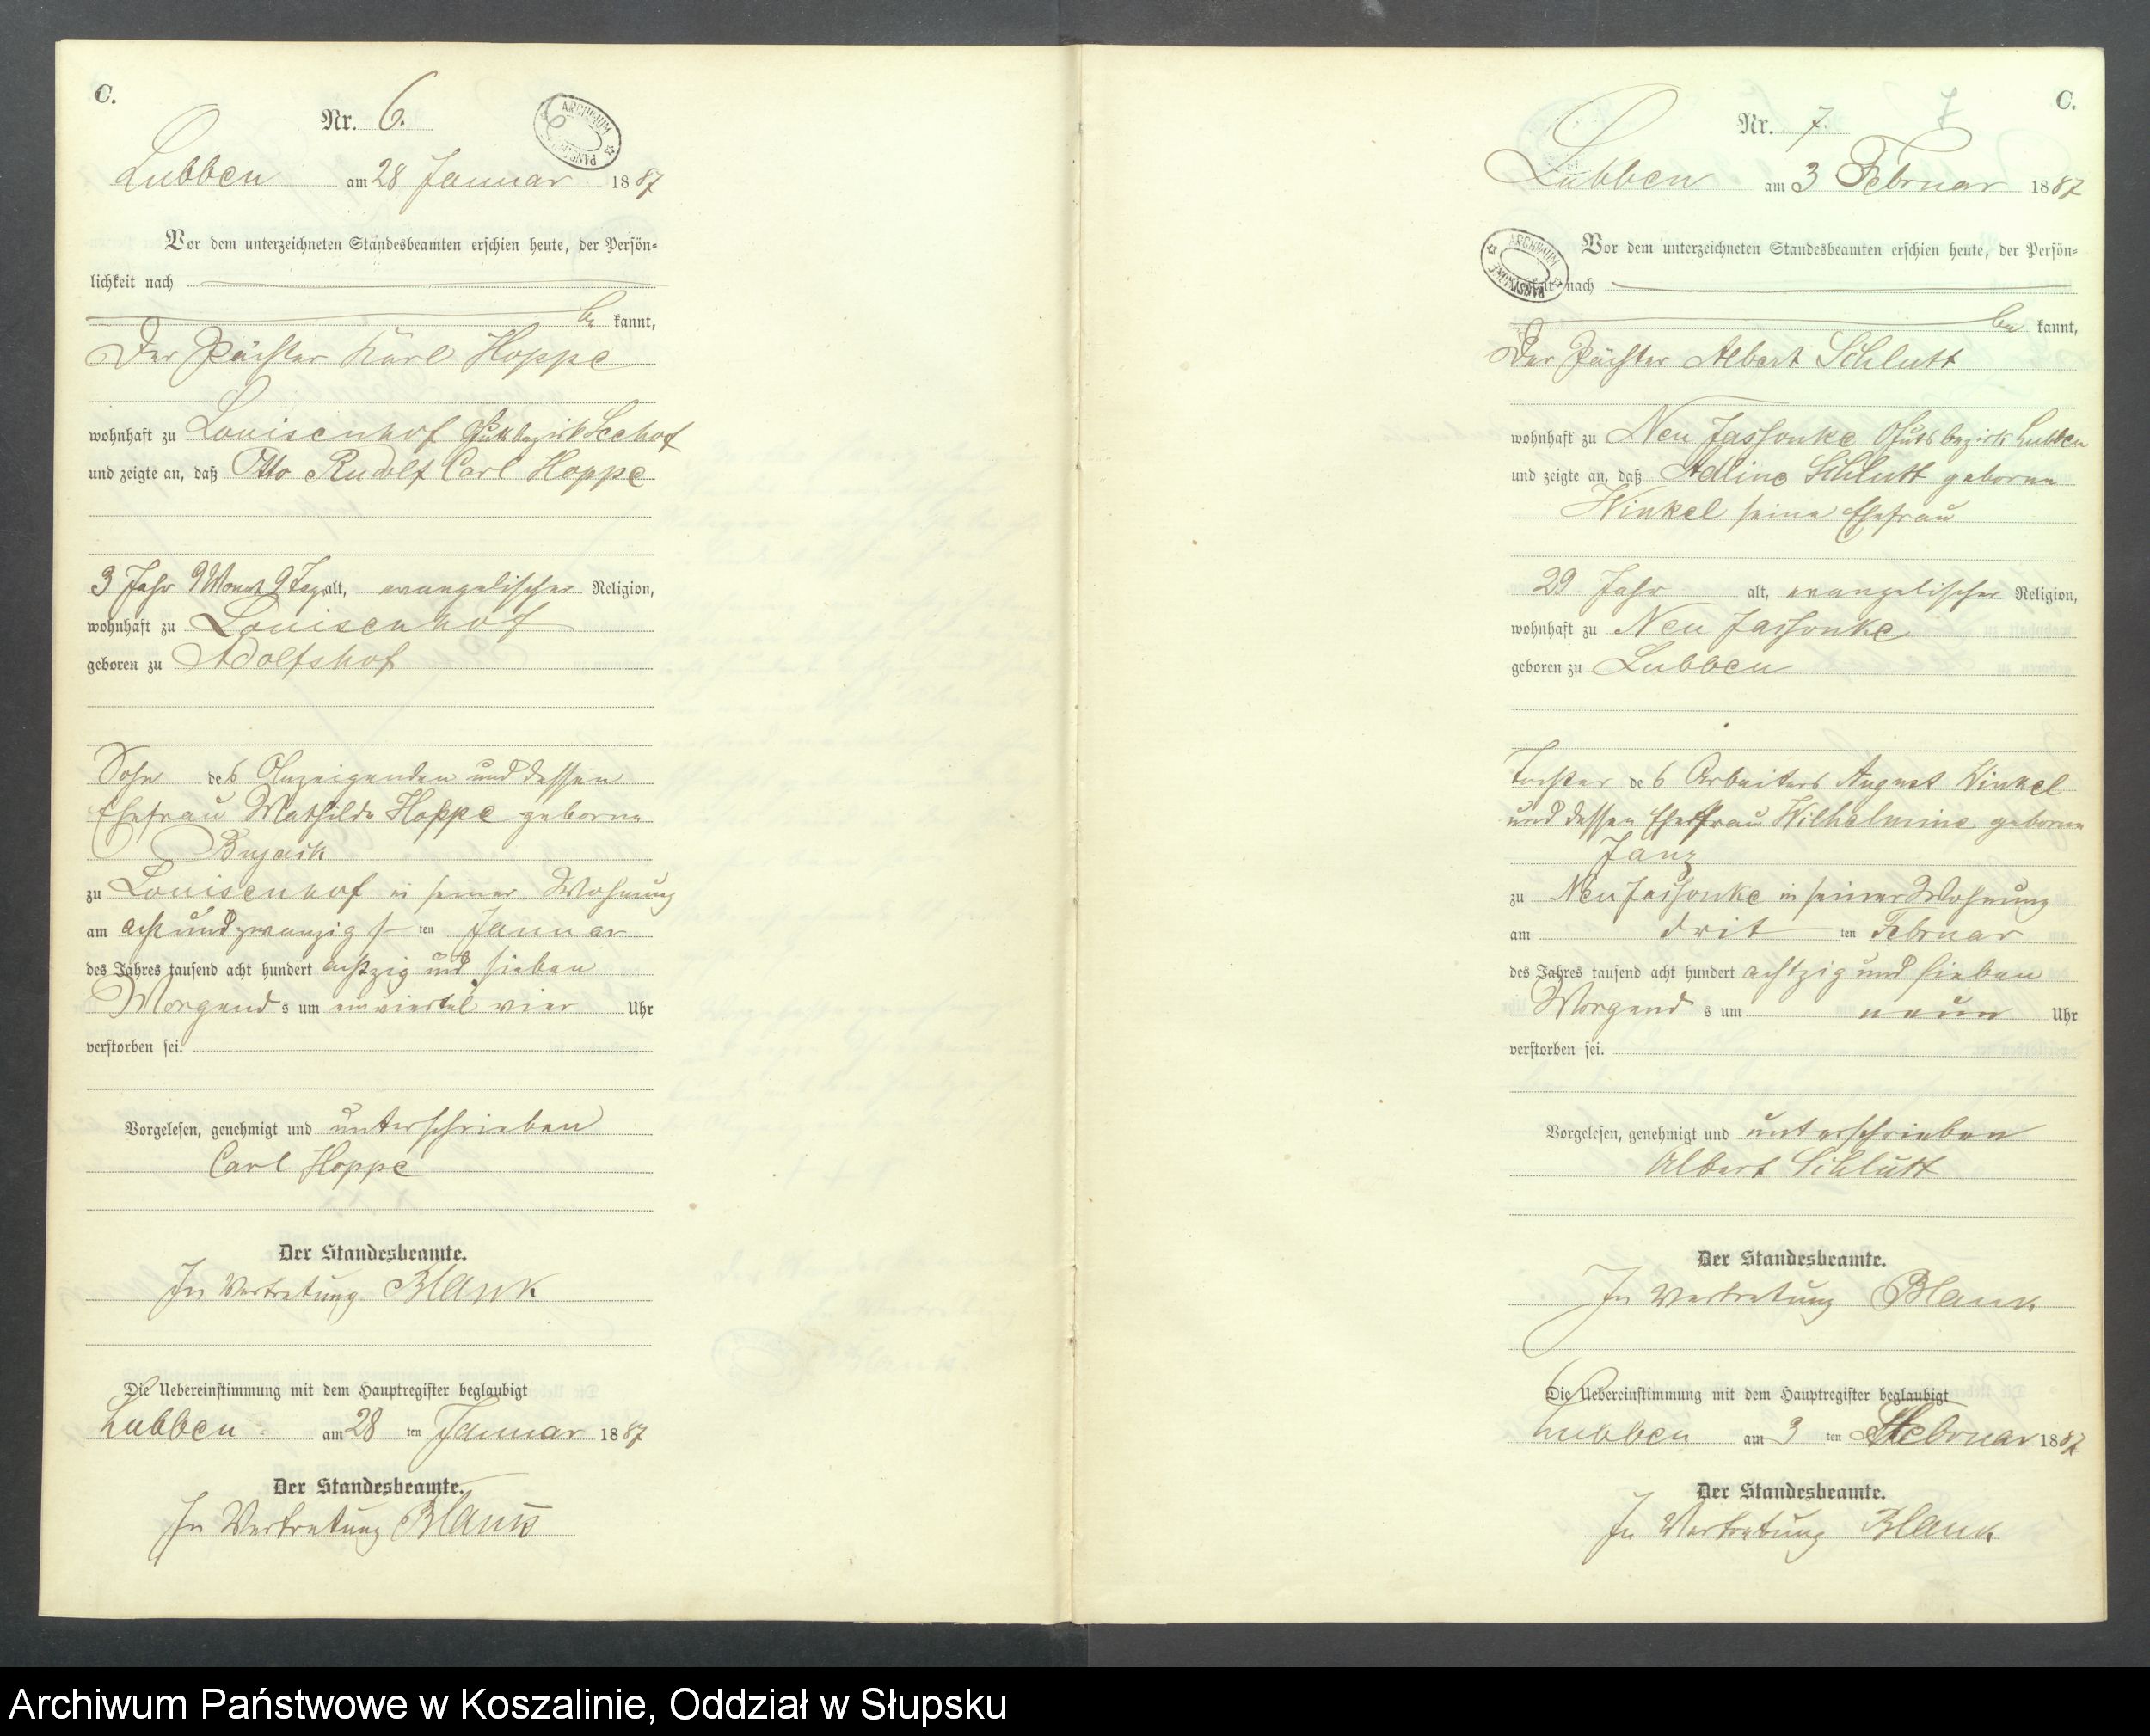 C.
Nr. 6.
ARCHIWUM PAŃSTW
Lubben am 28 Januar 1887
Vor dem unterzeichneten Standesbeamten erschien heute, der Persön-
lichkeit nach
be kannt,
Der Pächter Karl Hoppe
wohnhaft zu Louisenhof Gutsbezirk Seehof
und zeigte an, daß Otto Rudolf Carl Hoppe
3 Jahr 9 Monat 9 Tag alt, evangelischer Religion,
wohnhaft zu Louisenhof
geboren zu Adolfshof
Sohn des Anzeigenden und dessen
Ehefrau Mathilde Hoppe geborne
zu Louisenhof in seiner Wohnung
am achtundzwanzigsten Januar
des Jahres tausend acht hundert achtzig und sieben
Morgends um einviertel vier Uhr
verstorben sei.
Vorgelesen, genehmigt und unterschrieben
Carl Hoppe
Der Standesbeamte.
In Vertretung Blank
Die Uebereinstimmung mit dem Hauptregister beglaubigt
Lubben am 28 ten Januar 1887
Der Standesbeamte.
In Vertretung Blank
C.
7
Nr. 7.
Lubben am 3 Februar 1887
ARCHIWUM PAŃSTWOWE
Vor dem unterzeichneten Standesbeamten erschien heute, der Persön-
lichkeit nach
be kannt,
Der Pächter Albert Schlutt
wohnhaft zu Neu Jassonke Gutsbezirk Lubben
und zeigte an, daß Adline Schlutt geborne
Winkel seine Ehefrau
29 Jahr alt, evangelischer Religion,
wohnhaft zu Neu Jassonke
geboren zu Lubben
Tochter des Arbeiters August Winkel
und dessen Ehefrau Wilhelmine geborne
Janz
zu Neu Jassonke in seiner Wohnung
am dritten Februar
des Jahres tausend acht hundert achtzig und sieben
Morgends um neun Uhr
verstorben sei.
Vorgelesen, genehmigt und unterschrieben
Albert Schlutt
Der Standesbeamte.
In Vertretung Blank
Die Uebereinstimmung mit dem Hauptregister beglaubigt
Lubben am 3 ten Februar 1887
Der Standesbeamte.
In Vertretung Blank
Archiwum Państwowe w Koszalinie, Oddział w Słupsku